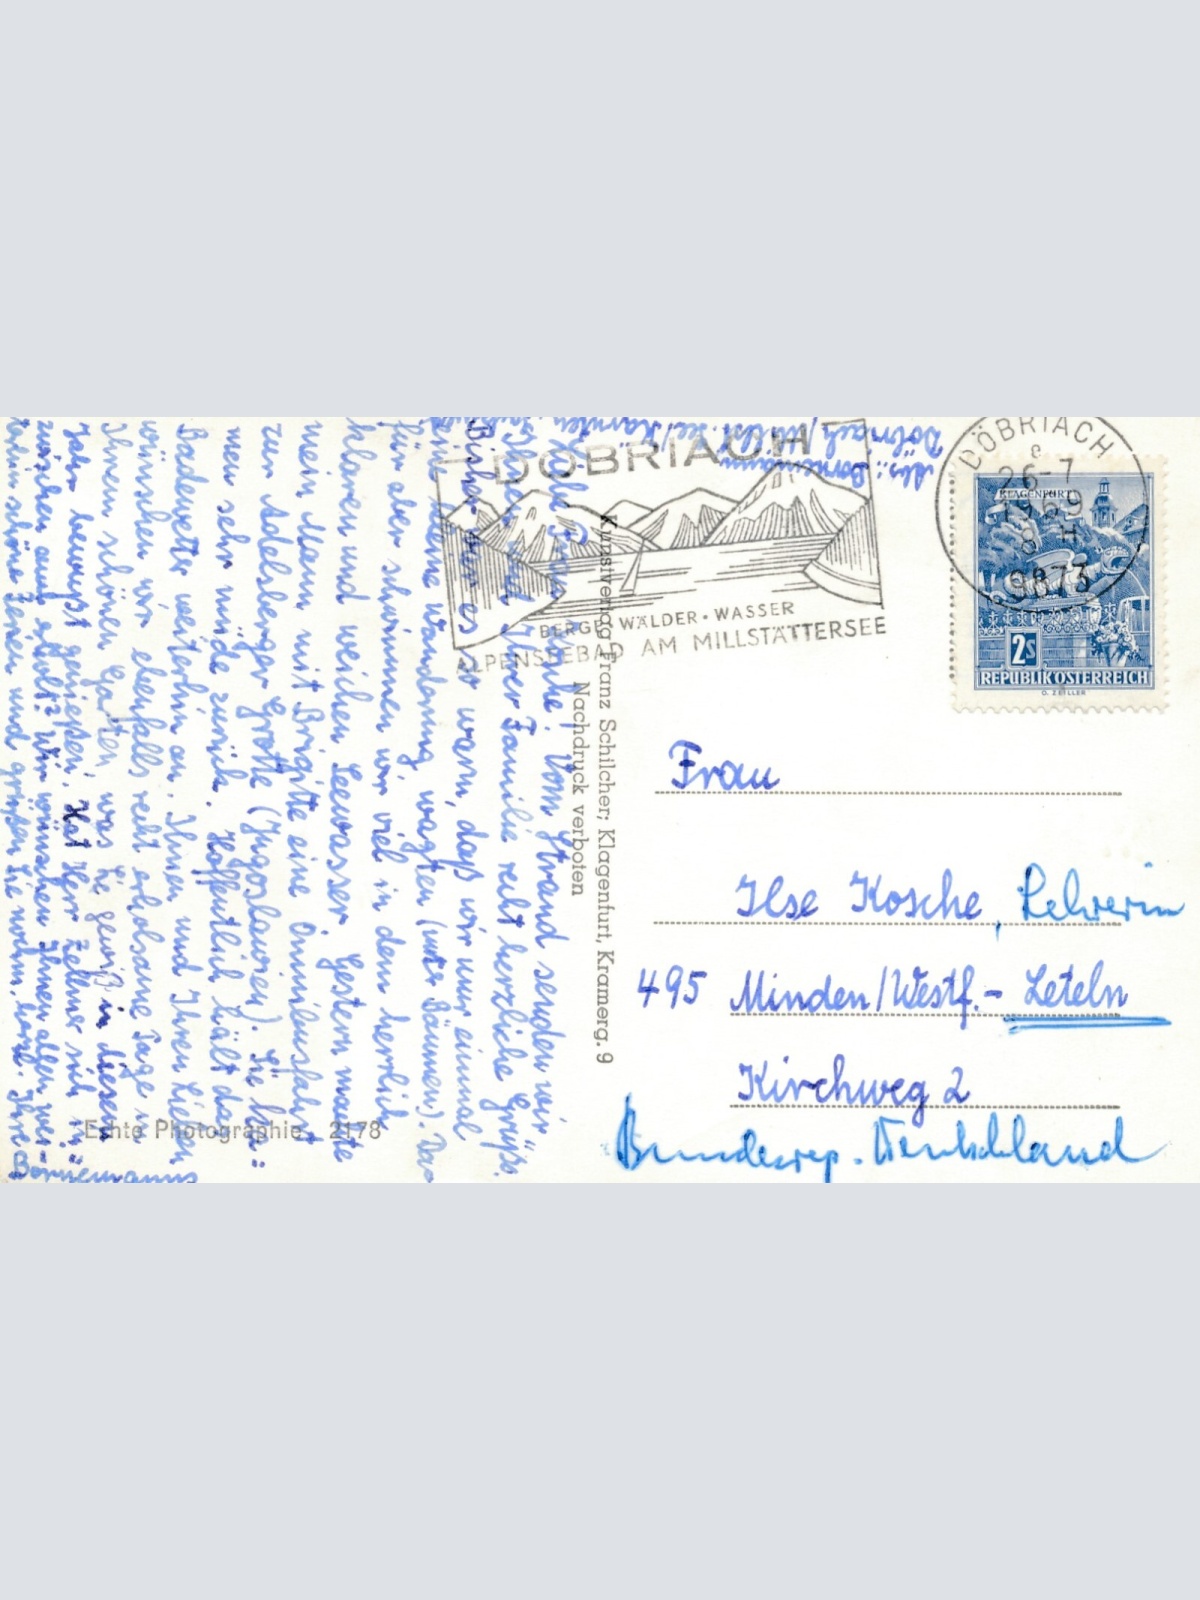 DÖBRIACH
BERGE · WÄLDER · WASSER
ALPENSEEBAD AM MILLSTÄTTERSEE
DÖBRIACH
e
26-7
1969
8 H
9873
KLAGENFURT
2S
REPUBLIK ÖSTERREICH
O. ZEILLER
Abs.: Bornemann
Döbriach/Millst. See/Kärnten
Frau
Ilse Kosche, Lehrerin
495 Minden/Westf.- Leteln
Kirchweg 2
Bundesrep. Deutschland
Kunstverlag Franz Schilcher, Klagenfurt, Kramerg. 9
Nachdruck verboten
Echte Photographie 2178
Vom Strand senden wir
Ihnen und Ihrer Familie recht herzliche Grüße.
Bisher war es so warm, daß wir nur einmal
eine kleine Wanderung wagten (unter Bäumen). Da-
für aber schwimmen wir viel in dem herrlich
klaren und weichen Seewasser. Gestern machte
mein Mann mit Brigitte eine Omnibusfahrt
zur Adelsberger Grotte (Jugoslawien). Sie ka-
men sehr müde zurück. Hoffentlich hält das
Badewetter weiterhin an. Ihnen und Ihren Lieben
wünschen wir ebenfalls recht erholsame Tage in
Ihrem schönen Garten, was Sie gewiß in diesem
Jahr bewußt genießen. Hat Herr Zellmer sich in-
zwischen auf erholt? Wir wünschen Ihnen allen wei-
terhin schöne Ferien und grüßen Sie nochm. herzl. Ihre
Bornemanns